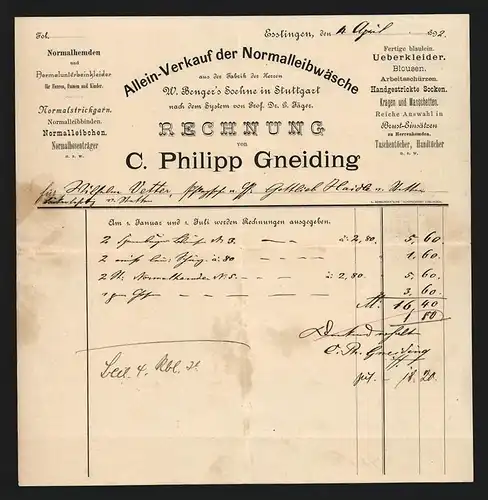 Fol.
Esslingen, den 4 April 892.
Normalhemden
und
Normalunterbeinkleider
für Herren, Damen und Kinder.
Normalstrickgarn.
Normalleibbinden.
Normalleibchen.
Normalhosenträger
u. s. w.
Allein-Verkauf der Normalleibwäsche
aus der Fabrik der Herren
W. Benger's Soehne in Stuttgart
nach dem System von Prof. Dr. G. Jäger.
Fertige blaulein.
Ueberkleider.
Blousen.
Arbeitsschürzen.
Handgestrickte Socken.
Kragen und Manschetten.
Reiche Auswahl in
Brust-Einsätzen
zu Herrenhemden.
Taschentücher, Handtücher
u. s. w.
RECHNUNG
von
C. Philipp Gneiding
für Wilhelm Vetter, Gottlieb
Am 1. Januar und 1. Juli werden Rechnungen ausgegeben.
2 N. 3. — — à 2,80. 5, 60
2 à 80 — — 1, 60
2 St. Normalhemden N. 5. — à 2,80. 5, 60
3, 60
M: 16, 40
1 80
Dankend erhalten
C. Ph. Gneiding
18. 20
Beil. 4. Rbl.